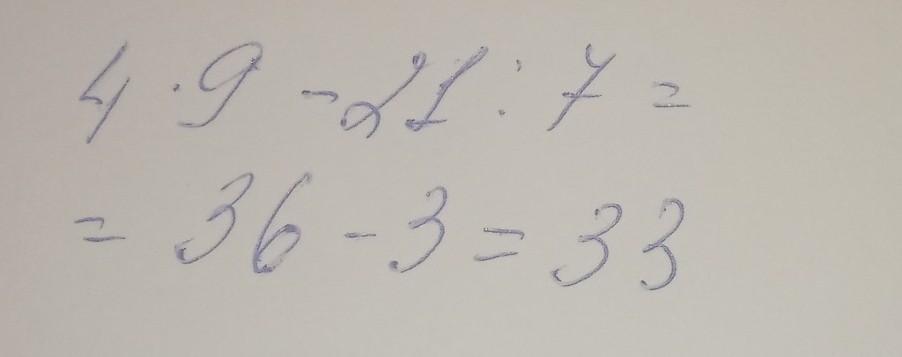 4 · 9 - 21 : 7 =
= 36 - 3 = 33